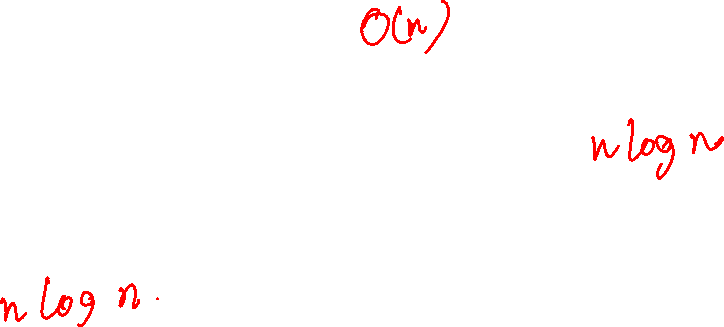 O(n)
n log n
n log n.